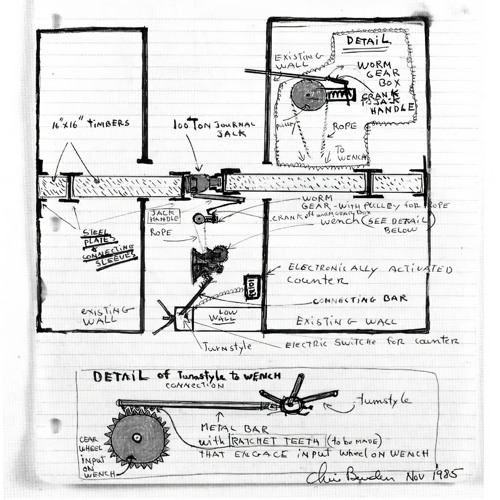 DETAIL
EXISTING
WALL
WORM
GEAR
BOX
CRANK
TO JACK
HANDLE
pulley
ROPE
TO
WENCH
16"x16" TIMBERS
100 TON JOURNAL
JACK
JACK
HANDLE
ROPE
WORM
GEAR - WITH PULLEY FOR ROPE
CRANK off WORM GEAR BOX
wench (SEE DETAIL)
BELOW
STEEL
PLATES
+
CONNECTING
SLEEVES
ELECTRONICALLY ACTIVATED
COUNTER
CONNECTING BAR
EXISTING
WALL
LOW
WALL
EXISTING WALL
Turnstyle
ELECTRIC SWITCHE FOR COUNTER
DETAIL of Turnstyle to WENCH
CONNECTION
turnstyle
GEAR
WHEEL
INPUT
ON
WENCH
METAL BAR
with RATCHET TEETH (to be MADE)
THAT ENGAGE INPUT Wheel ON WENCH
Chris Burden Nov 1985